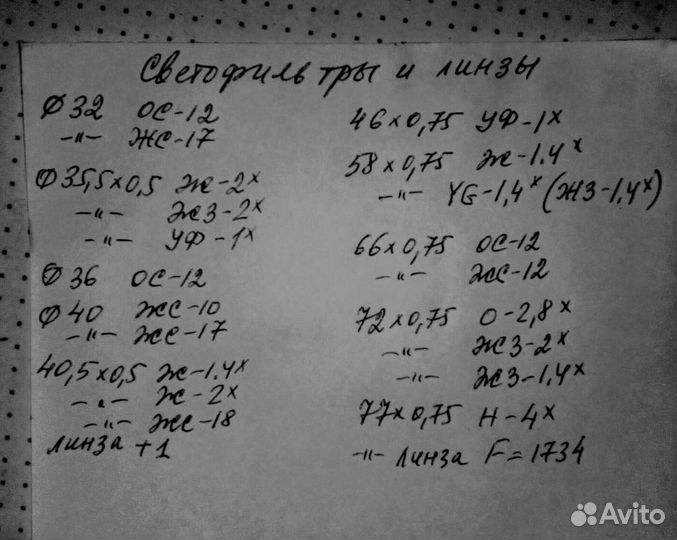 Светофильтры и линзы
Ø 32 ОС-12
-"- ЖС-17
Ø 35,5×0,5 Ж-2×
-"- ЖЗ-2×
-"- УФ-1×
Ø 36 ОС-12
Ø 40 ЖС-10
-"- ЖС-17
40,5×0,5 Ж-1.4×
-"- Ж-2×
-"- ЖС-18
линза +1
46×0,75 УФ-1×
58×0,75 Ж-1.4×
-"- YG-1,4× (ЖЗ-1,4×)
66×0,75 ОС-12
-"- ЖС-12
72×0,75 О-2,8×
-"- ЖЗ-2×
-"- ЖЗ-1.4×
77×0,75 Н-4×
-"- линза F=1734
Avito